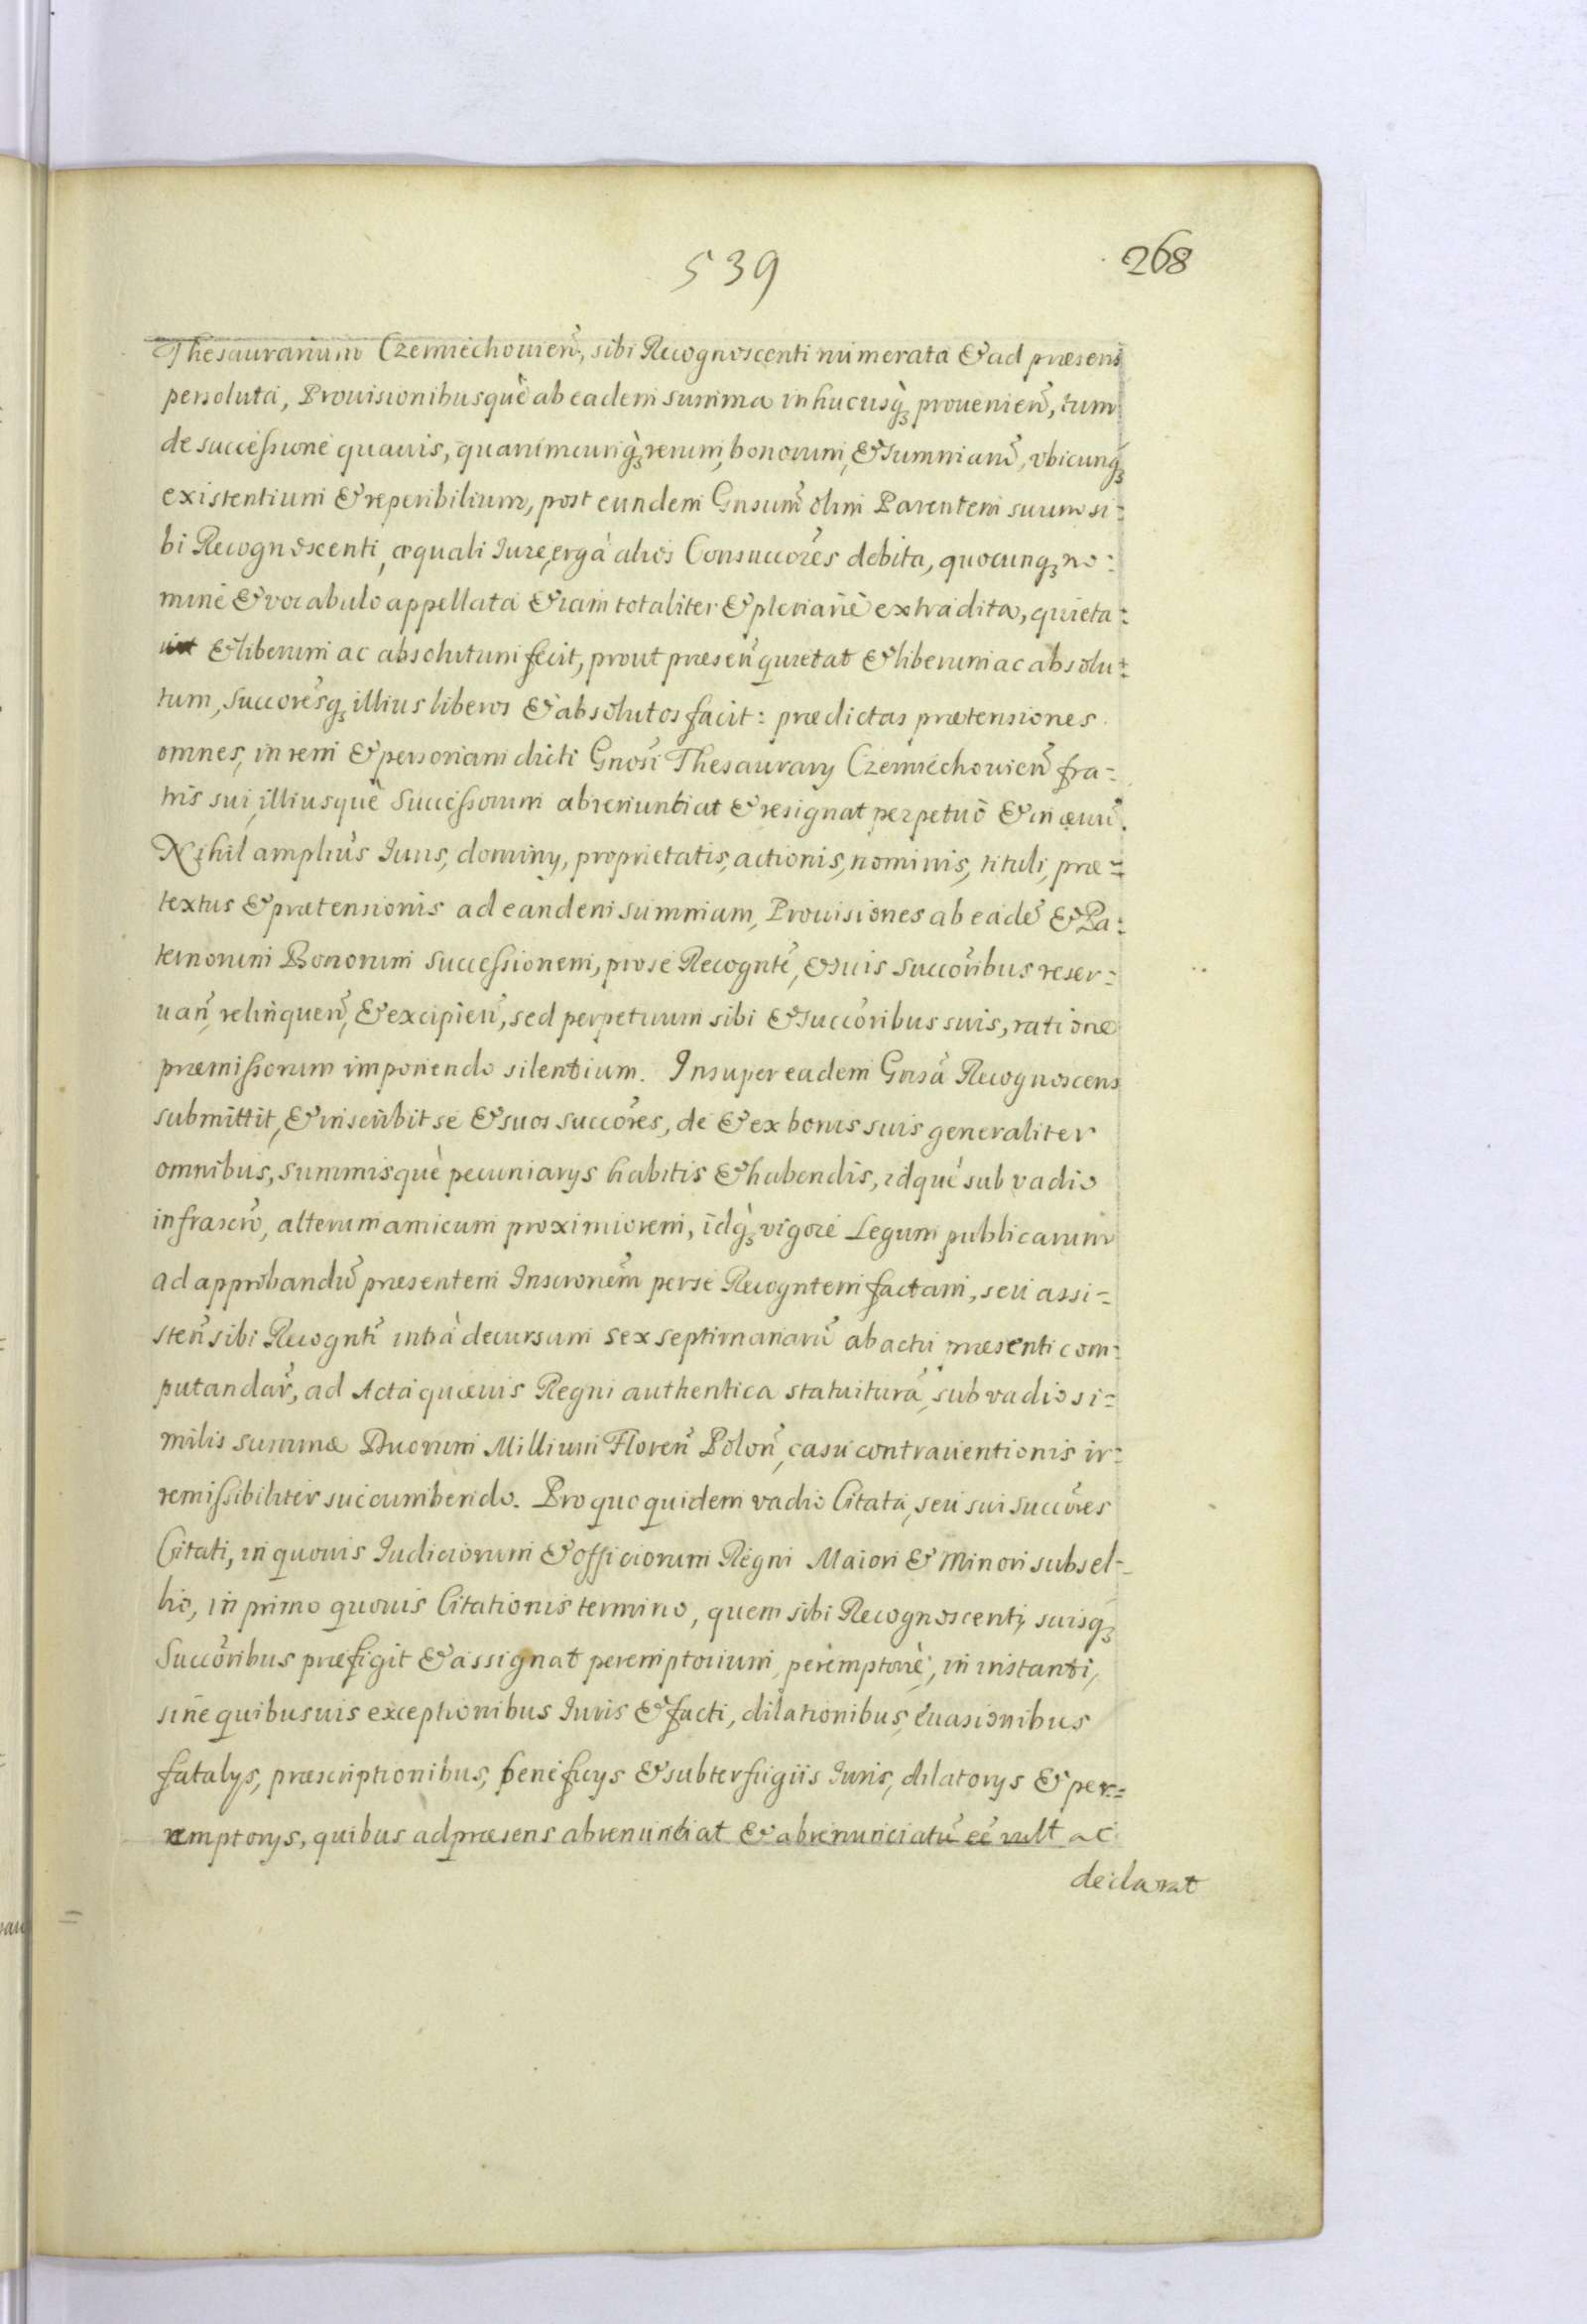 539
268
Thesaurarium Czerniechouien̄, sibi Recognoscenti numerata & ad præsens
persoluta, Prouisionibusquè ab eadem summa in hucusq́ꝫ prouenien̄, tum
de successione quauis, quarumcunq́ꝫ rerum, bonorum, & summaru᷉, vbicunq́ꝫ
existentium & reperibilium, post eundem Gnsum᷉ olim Parentem suum si:
bi Recognoscenti, æquali Iure, ergà alios Consuccor᷉es debita, quocunqꝫ no:
minè & vocabulo appellata & iam totaliter & plenariè extradita, quieta:
uit & liberum ac absolutum fecit, prout præsen᷉ quietat & liberum ac absolu:
tum, succor᷉esqꝫ illius liberos & absolutos facit: prædictas prætensiones
omnes, in rem & personam dicti Gnosi᷉ Thesaurarÿ Czerniechouien᷉ fra=
tris sui, illiusquè Successorum abrenuntiat & resignat perpetuò & in æuu᷉.
Nihil ampliùs Iuris, dominÿ, proprietatis, actionis, nominis, tituli, præ=
textus & prætensionis ad eandem summam, Prouisiones ab eade᷉ & Pa:
ternorum Bonorum successionem, pro se Recognte᷉, & suis succor᷉ibus reser=
uan᷉, relinquen᷉, & excipien᷉, sed perpetuum sibi & succor᷉ibus suis, ratione
præmissorum imponendo silentium. Insuper eadem Gnsa᷉ Recognoscens
submittit, & inscribit se & suos succor᷉es, de & ex bonis suis generaliter
omnibus, summisquè pecuniarÿs habitis & habendis, idquè sub vadio
infrascr᷉o, alterum amicum proximiorem, idq́ꝫ vigorè Legum publicarum
ad approbandu᷉ præsentem Inscronem᷉ per se Recogntem factam, seu assi=
sten᷉ sibi Recognti᷉ intrà decursum sex septimanaru᷉ ab actu præsenti com:
putandar᷉, ad Acta quæuis Regni authentica statuitura᷉, sub vadio si=
milis summæ Duorum Millium Floren᷉ Polon᷉, casu contrauentionis ir=
remissibiliter succumbendo. Pro quo quidem vadio Citata, seu sui succor᷉es
Citati, in quouis Iudiciorum & officiorum Regni Maiori & Minori subsel=
lio, in primo quouis Citationis termino, quem sibi Recognoscenti, suisq́ꝫ
Succor᷉ibus præfigit & assignat peremptorium, peremptoriè, in instanti,
sinè quibusuis exceptionibus Iuris & facti, dilationibus, euasionibus
fatalÿs, præscriptionibus, beneficÿs & subterfugiis Iuris, dilatorÿs & per=
remptorÿs, quibus ad præsens abrenuntiat & abrenunciatu᷉ ee᷉ vult ac
declarat